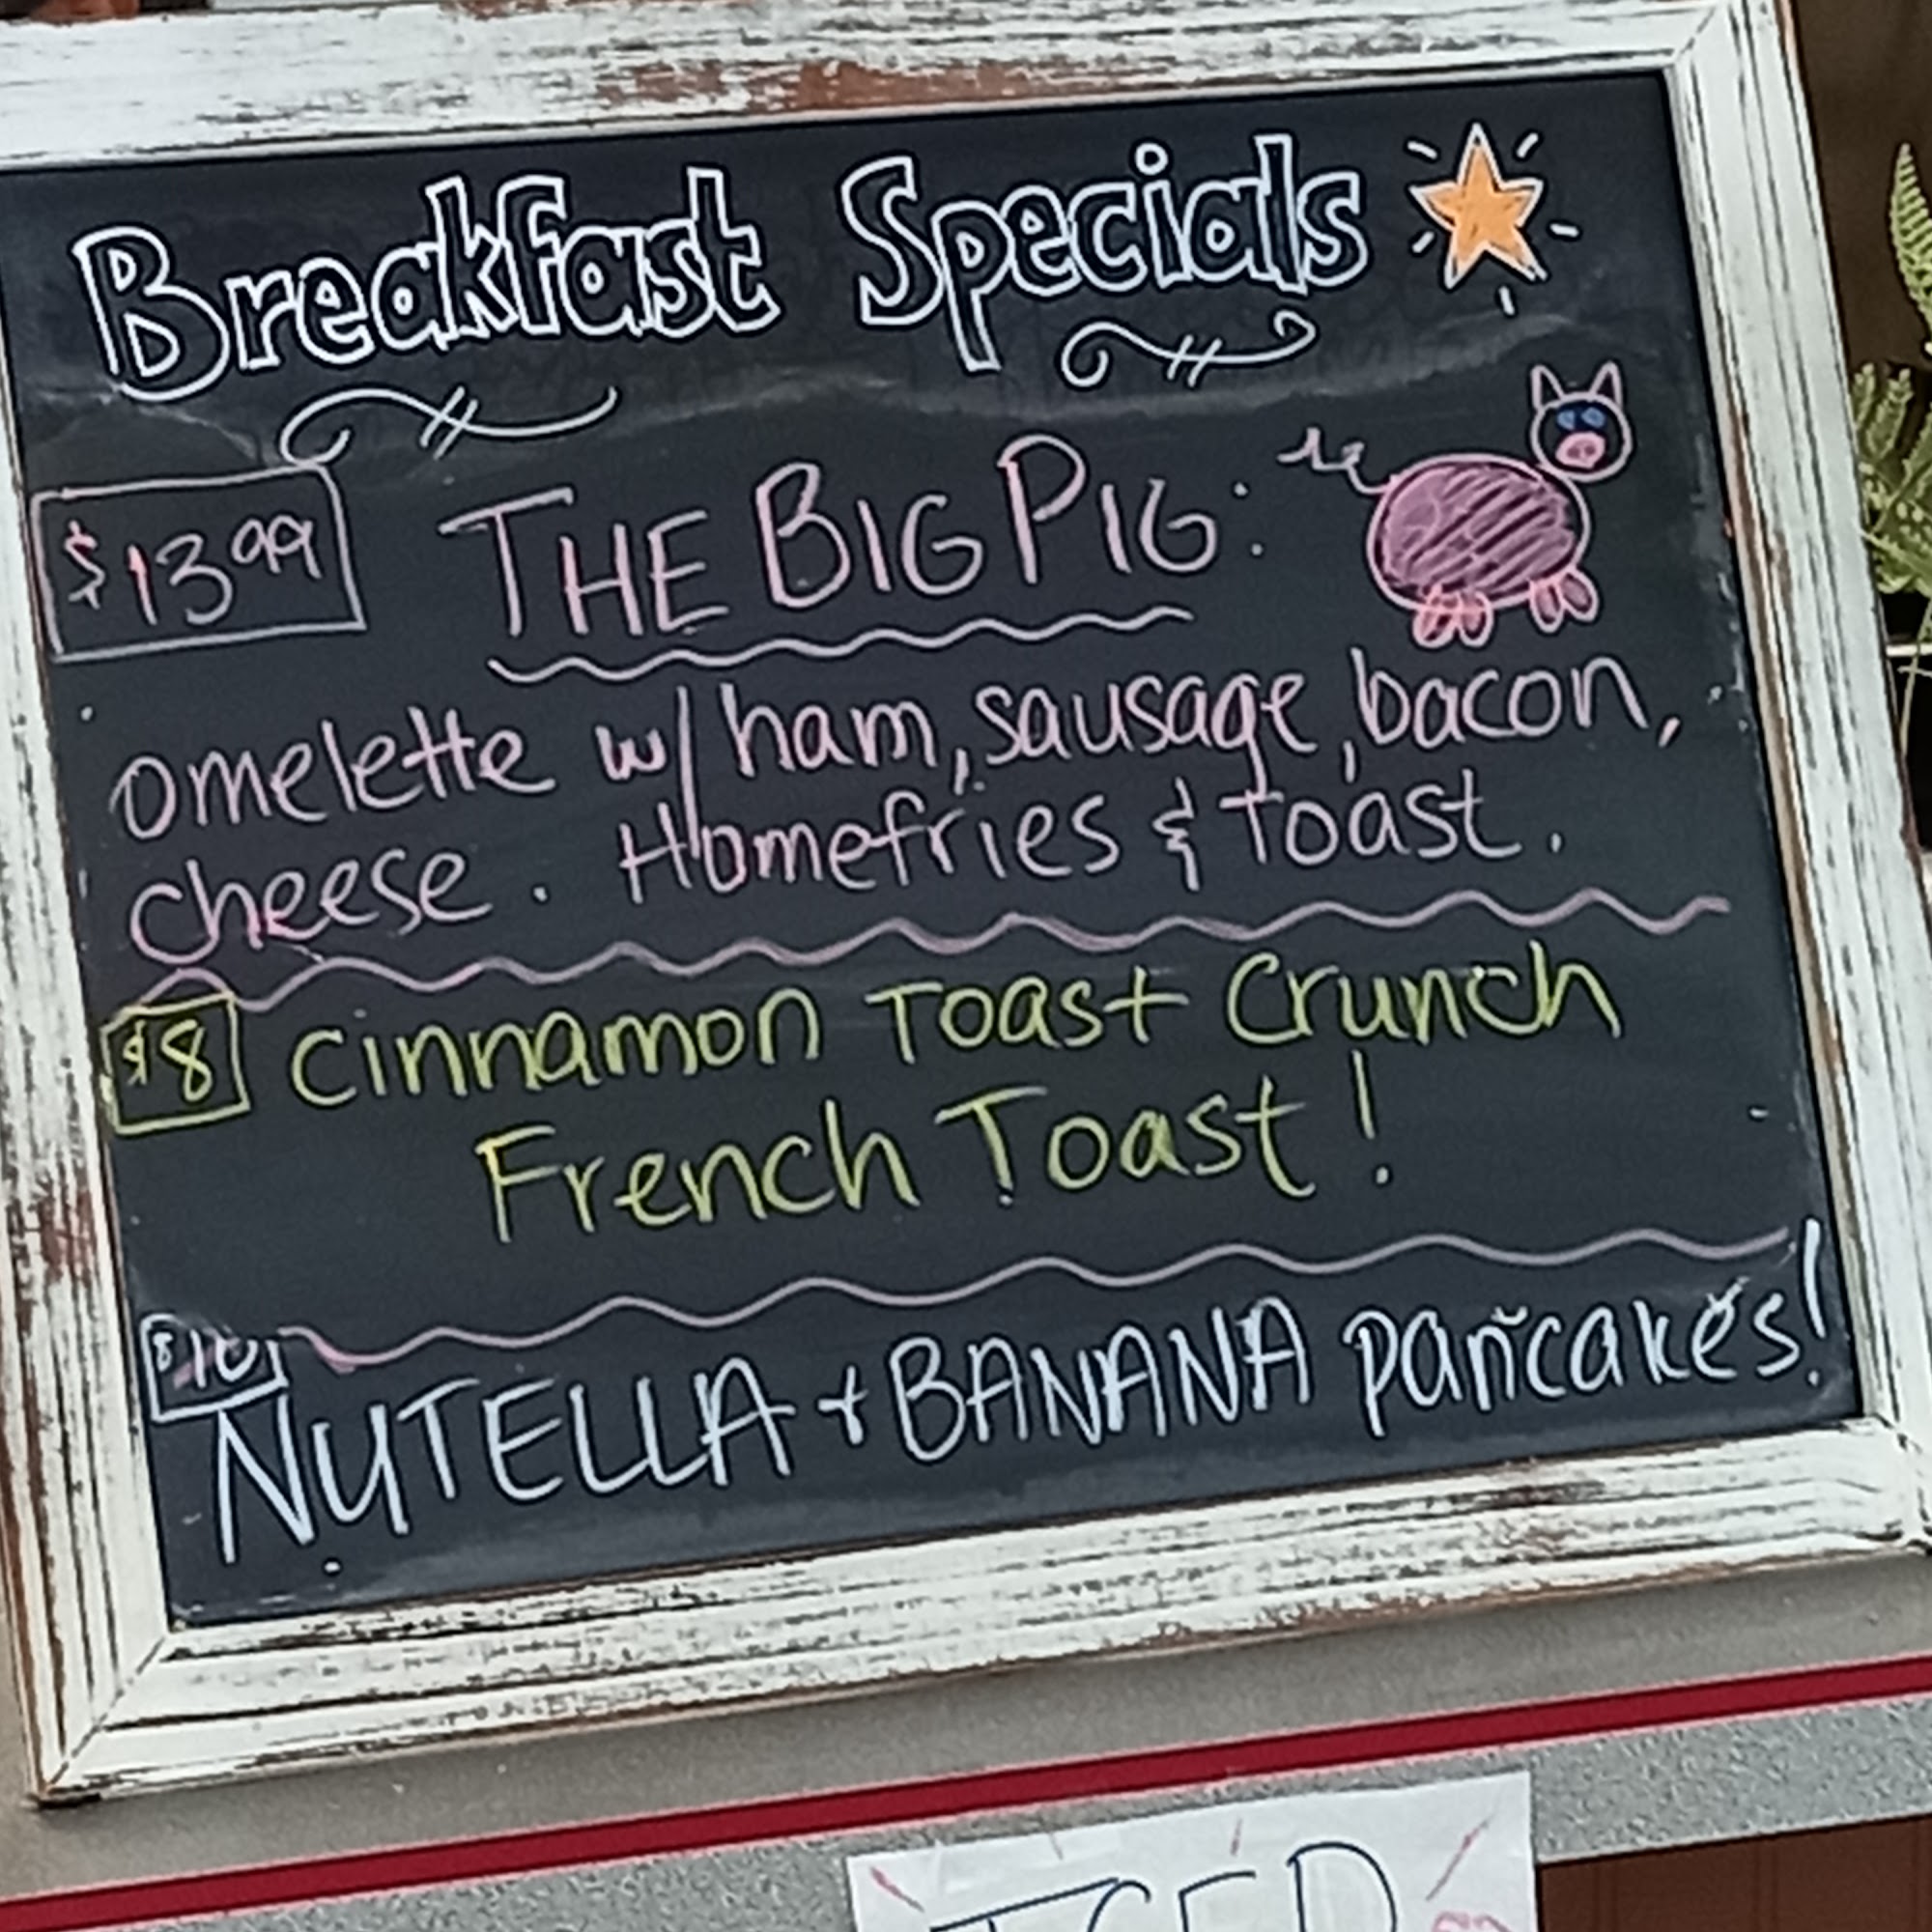 Breakfast Specials
$13.99 THE BIG PIG:
omelette w/ ham, sausage, bacon,
cheese. Homefries & Toast.
$8 Cinnamon Toast Crunch
French Toast!
$10
NUTELLA + BANANA pancakes!
ICED